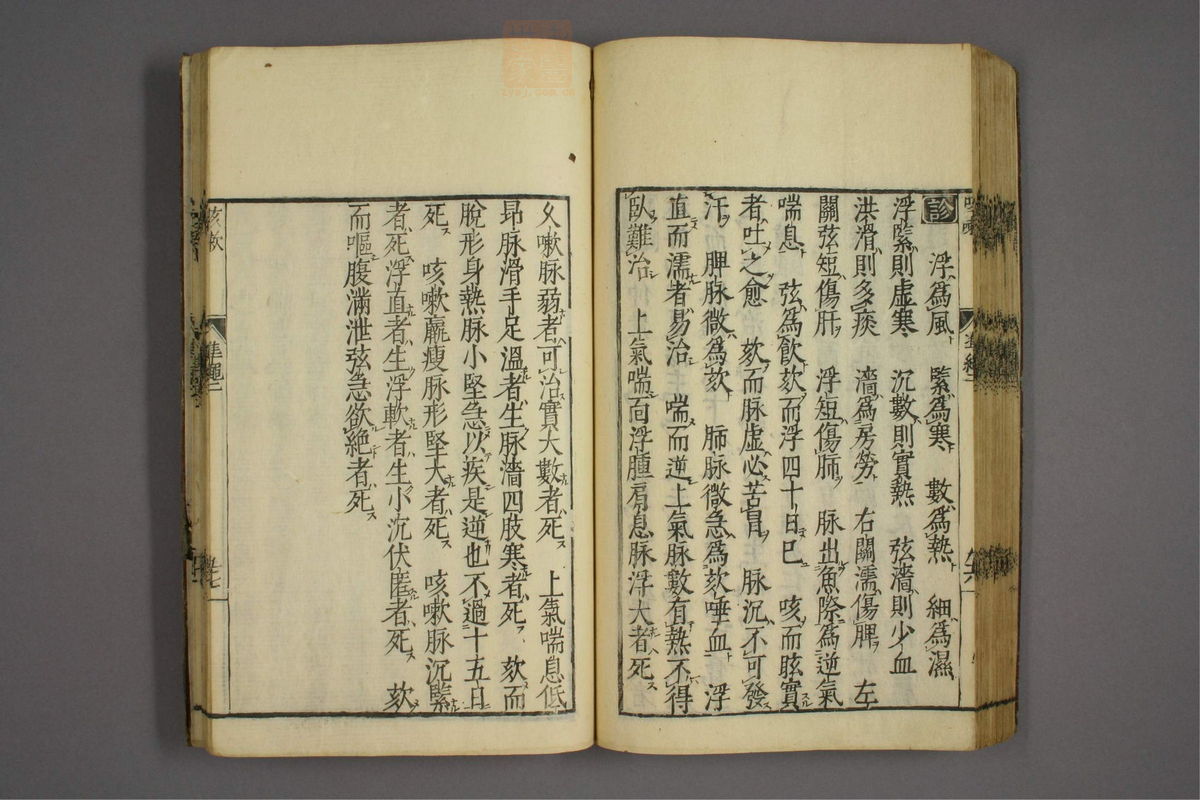 診 浮爲風 緊爲寒 數爲熱 細爲濕
浮緊則虛寒 沉數則實熱 弦濇則少血
洪滑則多痰 濇爲房勞 右關濡傷脾 左
關弦短傷肝 浮短傷肺 脉出魚際爲逆氣
喘息 弦爲飲 欬而浮四十日已 咳而眩實
者吐之愈 欬而脉虛必苦冒 脉沉不可發
汗 肺脉微急爲欬唾血 浮
直而濡者易治 喘而逆上氣脉數有熱不得
臥難治 上氣喘面浮腫肩息脉浮大者死
久嗽脉弱者可治實大數者死 上氣喘息低
昻脉滑手足溫者生脉濇四肢寒者死 欬而
脫形身熱脉小堅急以疾是逆也不過十五日
死 咳嗽羸瘦脉形堅大者死 咳嗽脉沉緊
者死浮直者生浮軟者生小沉伏匿者死 欬
而嘔腹滿泄弦急欲絕者死
咳嗽
準繩二